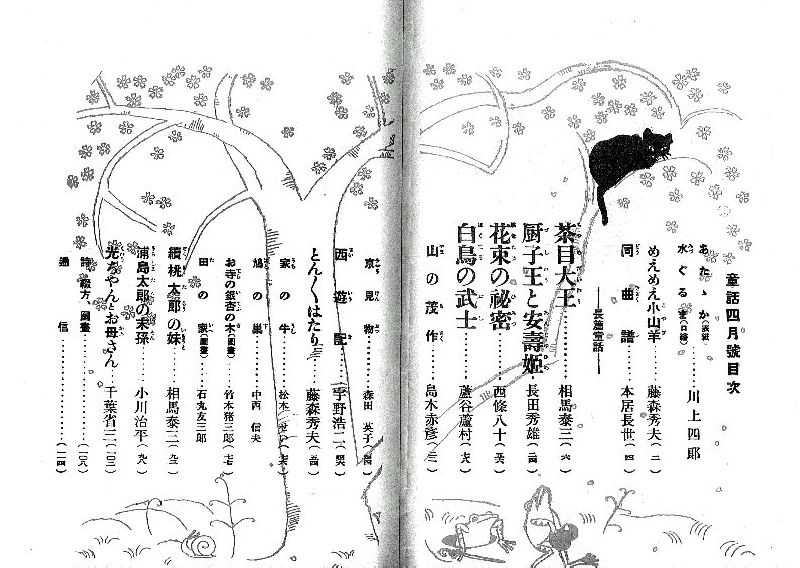 童話四月號目次
あたゝか(表紙)
水ぐるま(口繪)……川上四郎
めえめえ小山羊……藤森秀夫(二)
同曲譜……本居長世(四)
――長篇童話――
茶目大王……相馬泰三(六)
厨子王と安壽姫……長田秀雄
花束の祕密……西條八十
白鳥の武士……蘆谷蘆村
山の茂作……島木赤彦(三)
京見物……森田英子
西遊記……宇野浩二
とん〳〵はたり……藤森秀夫
家の牛……松本
鳩の巣……中西信夫
お寺の銀杏の木(自由畫)……竹木猪三郎
田の家(自由畫)……石丸友三郎
續桃太郎の妹……相馬泰三
浦島太郎の末孫……小川治平
光ちやんとお母さん……千葉省三(一〇三)
詩、綴方、圖畫……(一〇八)
通信……(一一四)